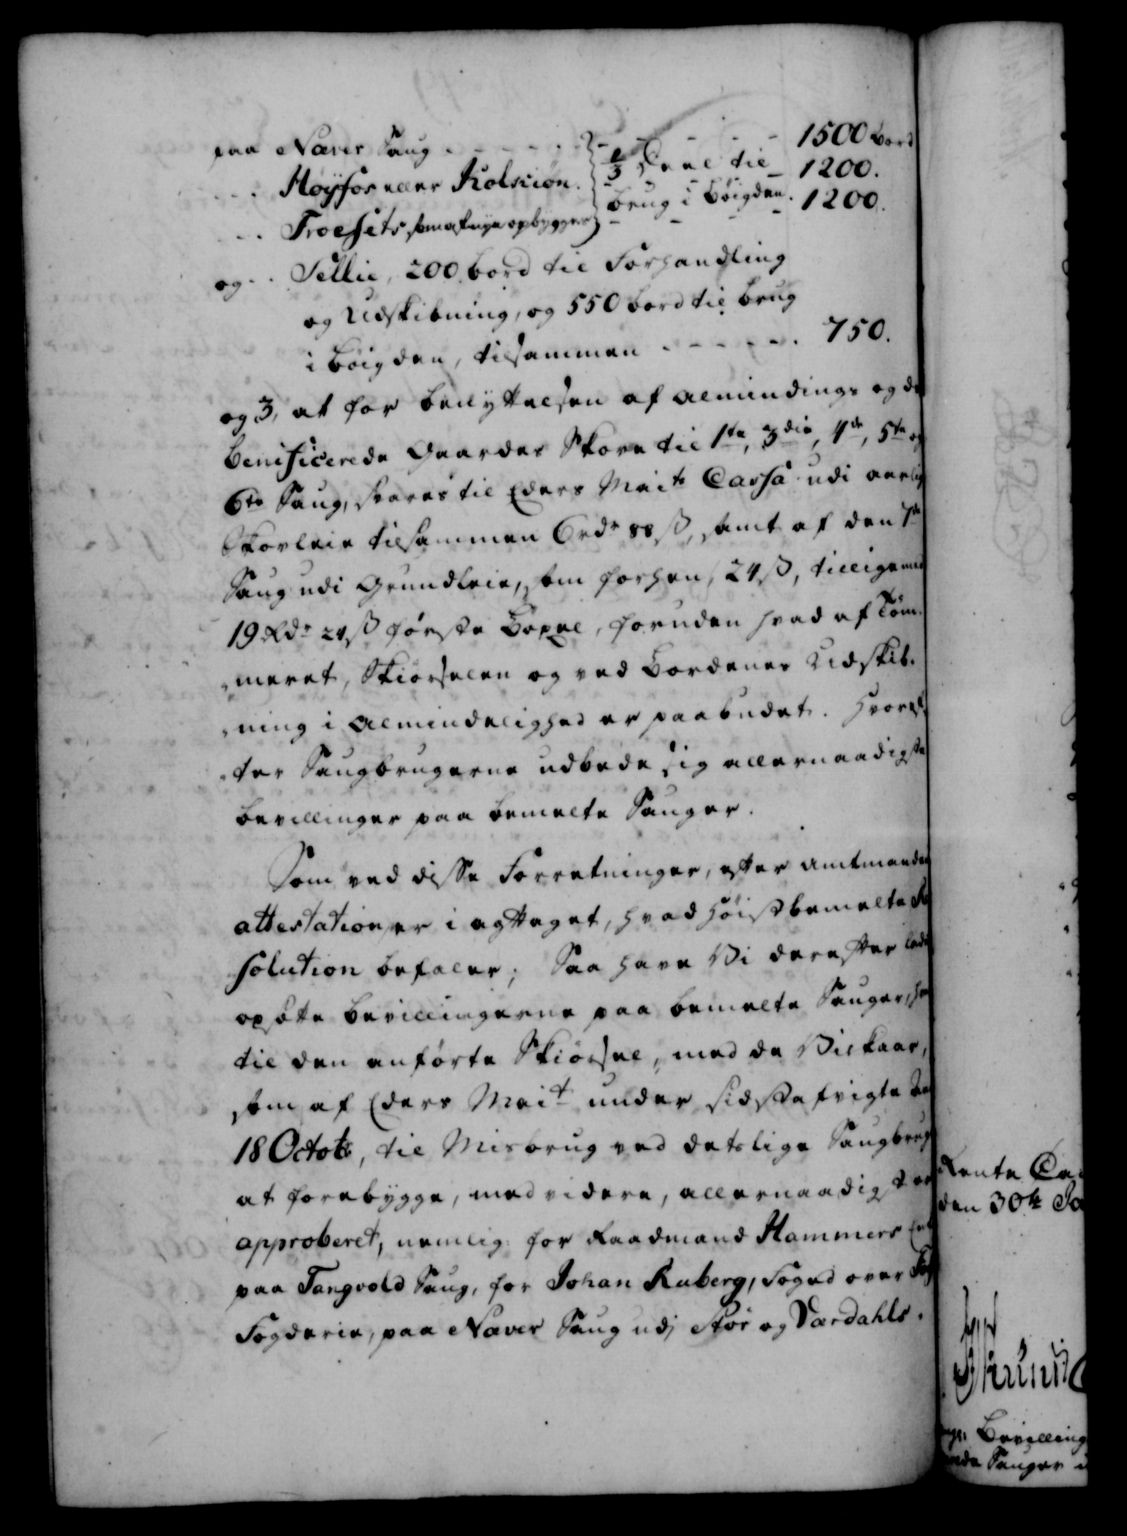 paa Næver Saug - - - - - - - 1500 bord
- - - Høyfos eller Kolskiøn. 1/3 Deel til 1200.
- - - Troesets, som af nye opbygges brug i böigden. 1200.
og - - Sellie, 200 bord til Forhandling
og Udskibning, og 550 bord til brug
i böigden, tilsammen - - - - - - 750.
og 3, at for benyttelsen af Almindings og de
benificerede Gaardes Skove til 1te, 3die, 4de, 5te og
6te Saug, svares til Eders Maits Cassa udi aarlig
Skovleie tilsammen 6 rdr 88 ß, samt af den 7de
Saug udi Grundleie, som forhen, 24 ß, tilligemed
19 Rdr 24 ß første Boxel, foruden hvad af Tøm-
meret, Skiørselen og ved Bordenes Udskib-
ning i Almindelighed er paabudet. Hvoref-
ter Saugbrugerne udbede sig allernaadigste
bevillinger paa bemelte Sauger.
Som ved disse Forretninger, efter Amtmandens
attestation, er iagttaget, hvad høistbemelte Re-
solution befaler; Saa have Vi derefter ladet
opsøte bevillingerne paa bemelte Sauger,
til den anførte Skiørsel, med de Vilkaar,
som af Eders Mait under sidstafvigte
18 Octobr, til Misbrug ved deslige Saugbrug
at forebygge, med videre, allernaadigst er
approberet, nemlig: for Raadmand Hammers
paa Tangvold Saug, for Johan Ruberg, Foged over
Fogderie, paa Næver Saug udj Stør og Værdahls.
Rente Ca
den 30te Ja
Bevilling
Sauger